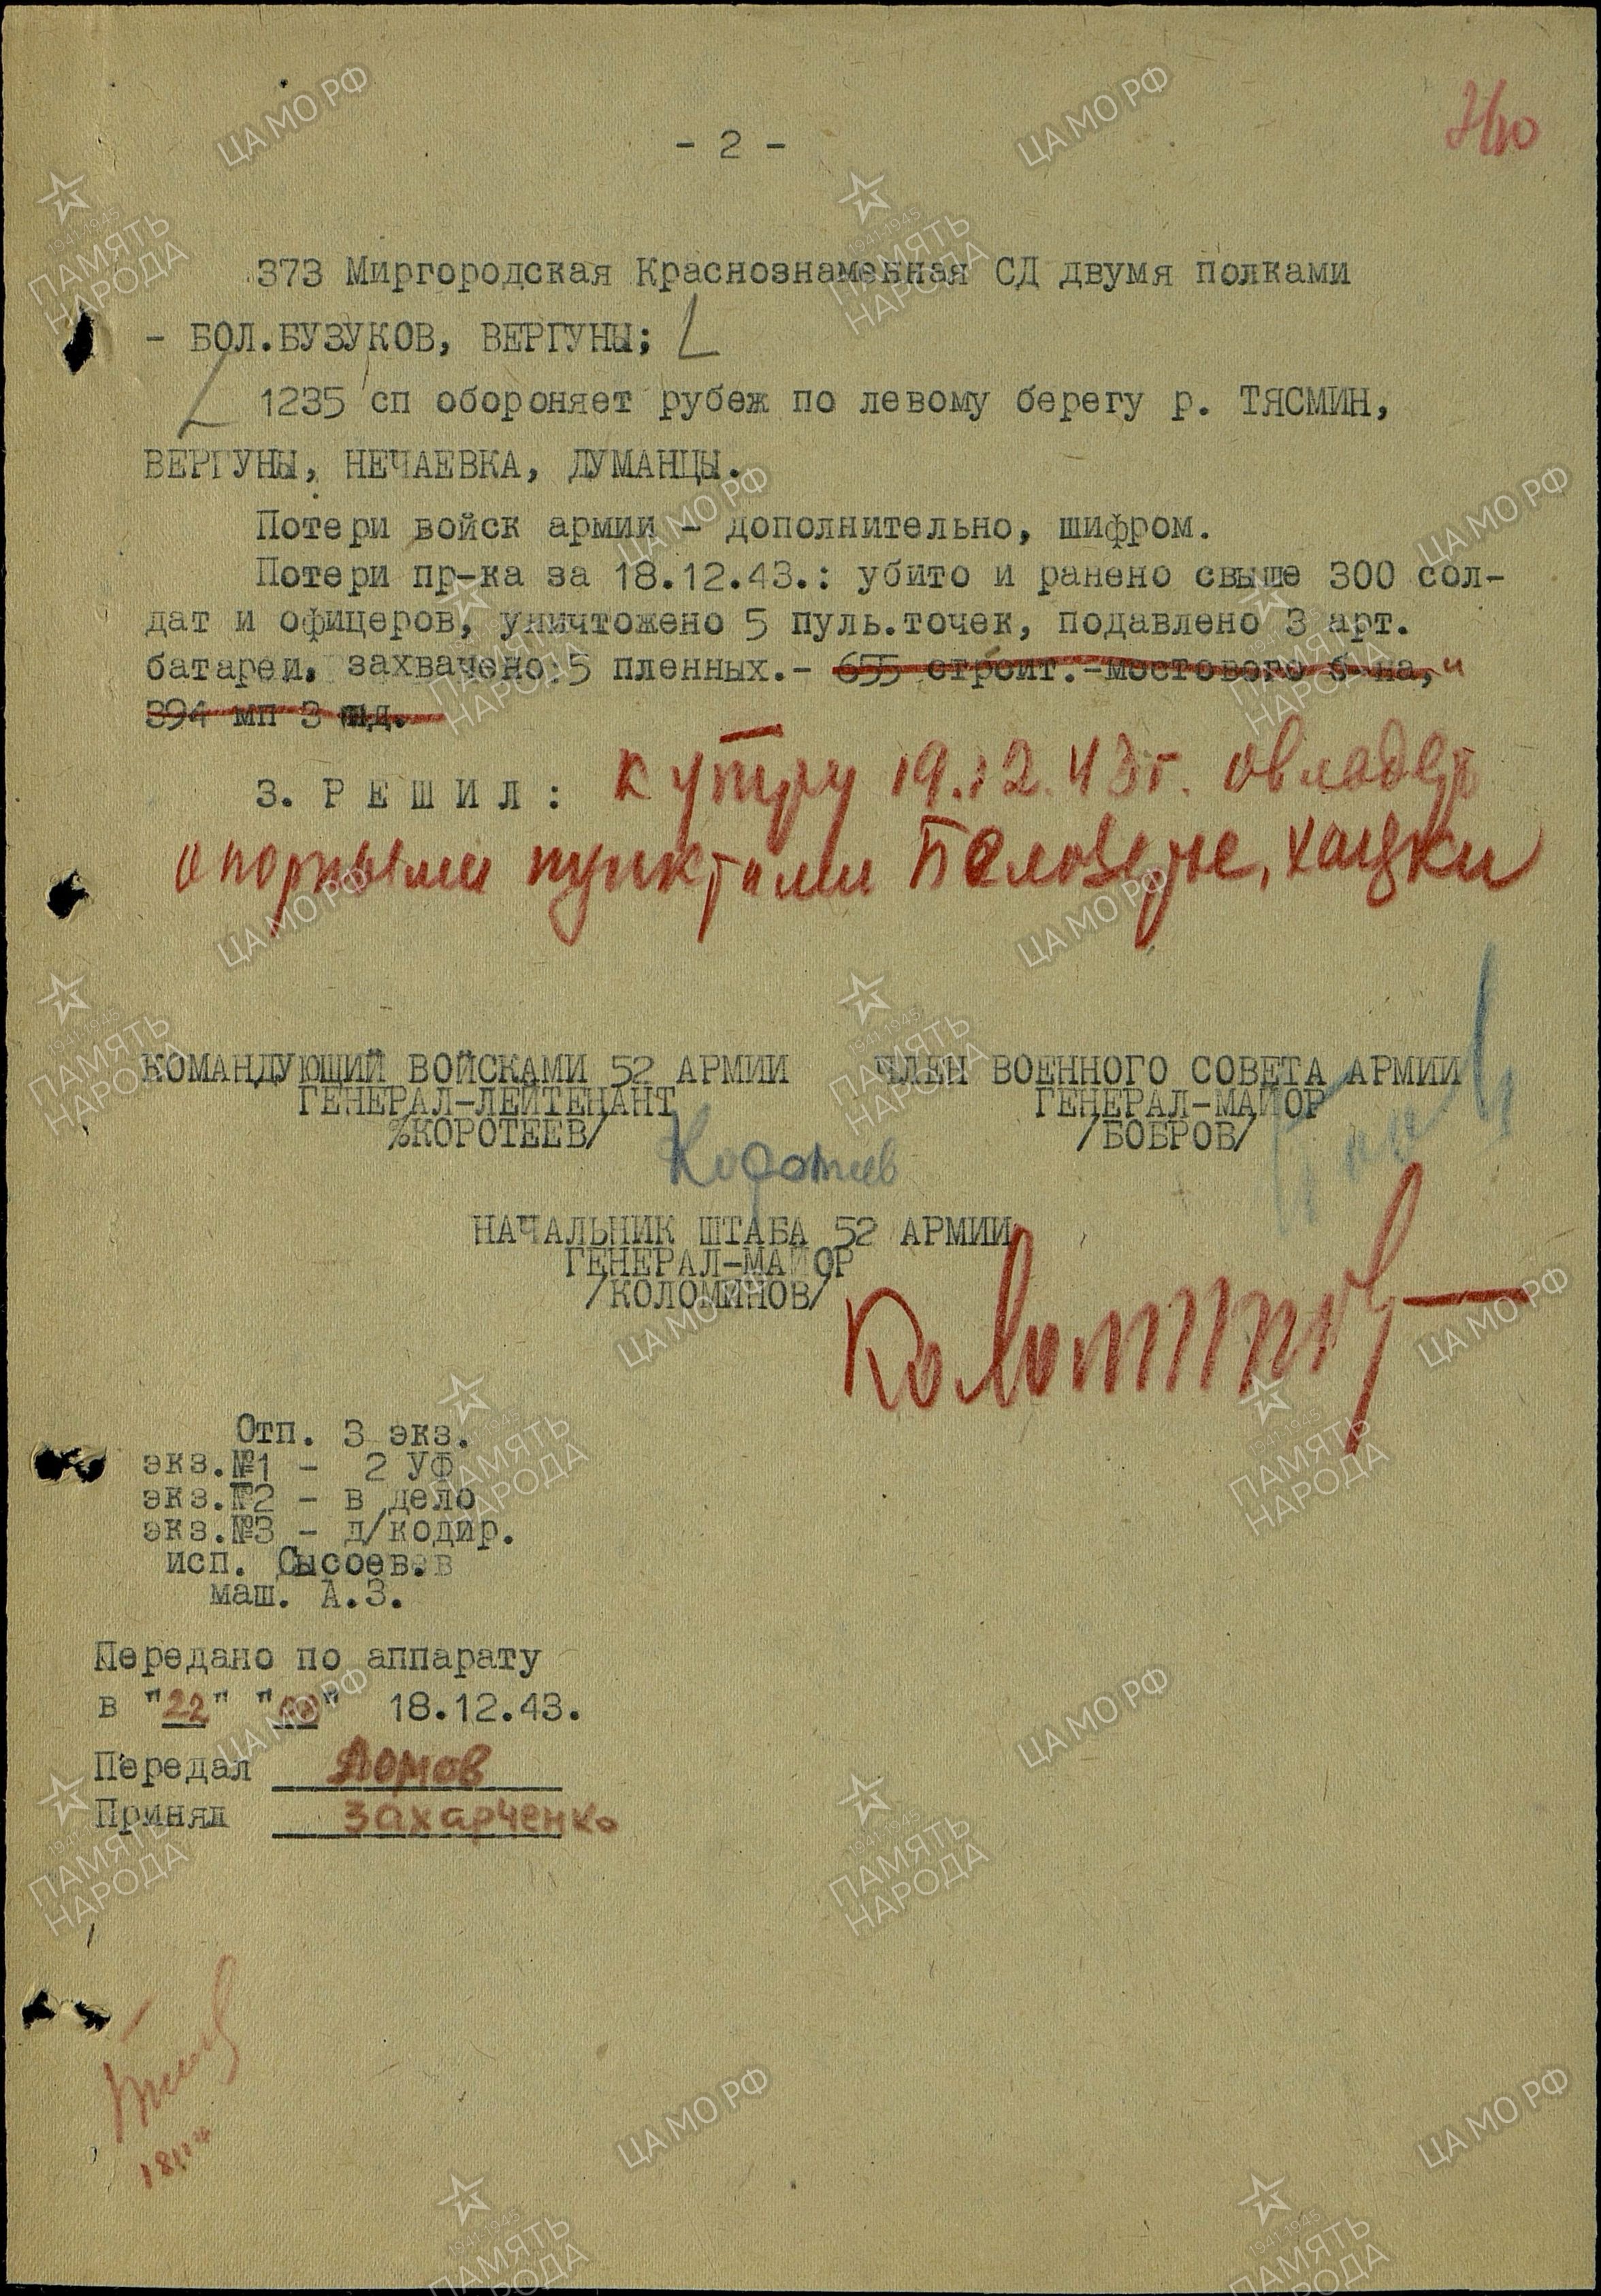 - 2 -
373 Миргородская Краснознаменная СД двумя полками
- БОЛ.БУЗУКОВ, ВЕРГУНЫ;
1235 сп обороняет рубеж по левому берегу р. ТЯСМИН,
ВЕРГУНЫ, НЕЧАЕВКА, ДУМАНЦЫ.
Потери войск армии - дополнительно, шифром.
Потери пр-ка за 18.12.43.: убито и ранено свыше 300 сол-
дат и офицеров, уничтожено 5 пуль.точек, подавлено 3 арт.
батареи, захвачено:5 пленных.- 655 строит.-мостового б-на, и
394 мп 3 тд.
3. Р Е Ш И Л : к утру 19.12.43г. овладеть
опорными пунктами Белозерье, Хацки
КОМАНДУЮЩИЙ ВОЙСКАМИ 52 АРМИИ ЧЛЕН ВОЕННОГО СОВЕТА АРМИИ
ГЕНЕРАЛ-ЛЕЙТЕНАНТ ГЕНЕРАЛ-МАЙОР
%КОРОТЕЕВ/ /БОБРОВ/
Коротеев
НАЧАЛЬНИК ШТАБА 52 АРМИИ
ГЕНЕРАЛ-МАЙОР
/КОЛОМИНОВ/
Коломинов
Отп. 3 экз.
экз.№1 - 2 УФ
экз.№2 - в дело
экз.№3 - д/кодир.
исп. Сысоев.
маш. А.З.
Передано по аппарату
в "22" " " 18.12.43.
Передал
Принял Захарченко
ЦАМО РФ
1941-1945
ПАМЯТЬ
НАРОДА